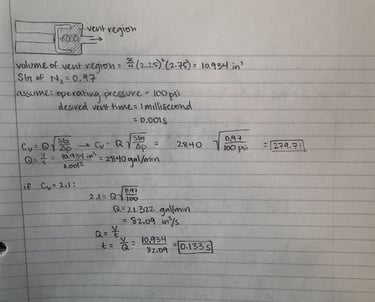 vent region
volume of vent region = π/4 (2.25)² (2.75) = 10.934 in³
SG of N₂ = 0.97
assume: operating pressure = 100 psi
desired vent time = 1 millisecond
= 0.001s
Cv = Q √(SG/Δp) → Cv = Q √(SG/Δp) = 2840 √(0.97/100 psi) = 279.71
Q = V/t = 10.934 in³/0.001s = 2840 gal/min
if Cv = 2.1:
2.1 = Q √(0.97/100)
Q = 21.322 gal/min
= 82.09 in³/s
Q = V/t
t = V/Q = 10.934/82.09 = 0.133 s